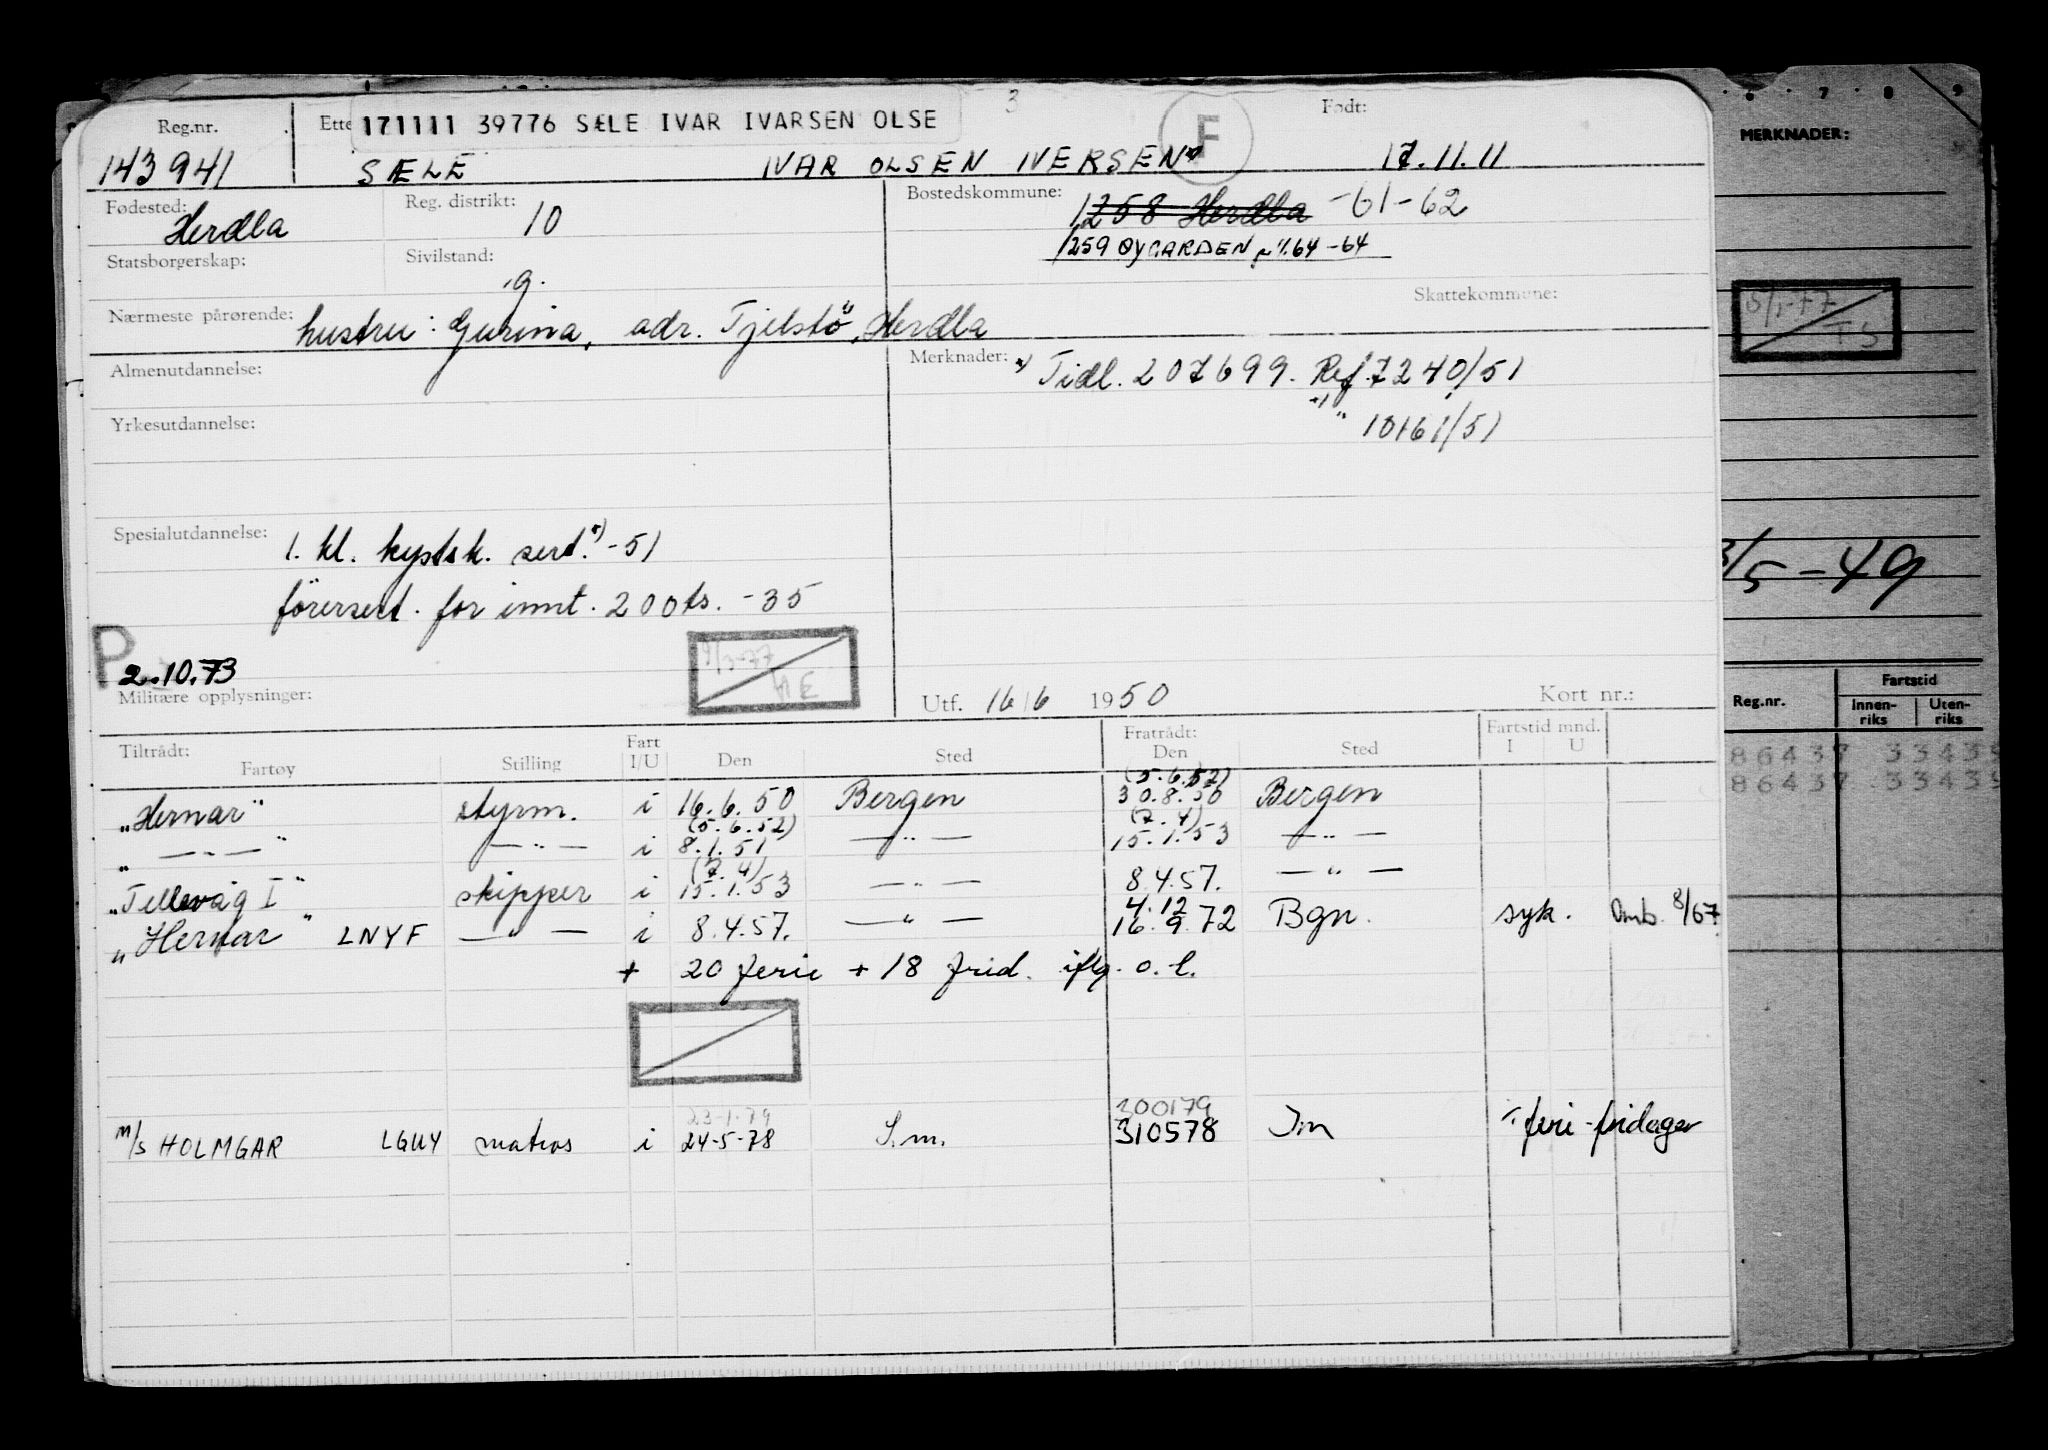 3
6 7 8 9
Reg.nr. Ette 171111 39776 SÆLE IVAR IVARSEN OLSE F Født:
MERKNADER:
143941 SÆLE IVAR OLSEN IVERSEN 17.11.11
Fødested: Herdla Reg. distrikt: 10 Bostedskommune: 1258 Herdla -61-62
1259 ØYGARDEN 64-64
Statsborgerskap: Sivilstand: g.
Skattekommune:
Nærmeste pårørende: hustru: Gurina, adr. Tjelstö, Herdla
Almenutdannelse: Merknader: x) Tidl. 207699. Ref. 7240/51
" 10161/51
Yrkesutdannelse:
Spesialutdannelse: 1. kl. kystsk. sert. x) -51
3/5-49
förersert. for innt. 200ts. -35
P
2.10.73
Militære opplysninger: Utf. 16/6 1950 Kort nr.:
Reg.nr. Fartstid
Innen-riks Uten-riks
86437 33439
86437 33439
Tiltrådt: Fratrådt: Fartstid mnd.
Fartøy Stilling Fart I/U Den Sted Den Sted I U
(5.6.52)
"Hernar" styrm. i 16.6.50 Bergen 30.8.50 Bergen
(5.6.52) (7.4)
" — " — " — " — i 8.1.51 — " — 15.1.53 — " —
(7.4)
"Tellevåg I" skipper i 15.1.53 — " — 8.4.57. — " —
4.12
"Hernar" LNYF — " — i 8.4.57. — " — 16.9.72 Bgn. syk. Omb. 8/67
+ 20 ferie + 18 frid. iflg. o.l.
23-1-79 300179
M/S HOLMGAR LGUY matros i 24-5-78 S.m. 310578 Sm feri-fridager